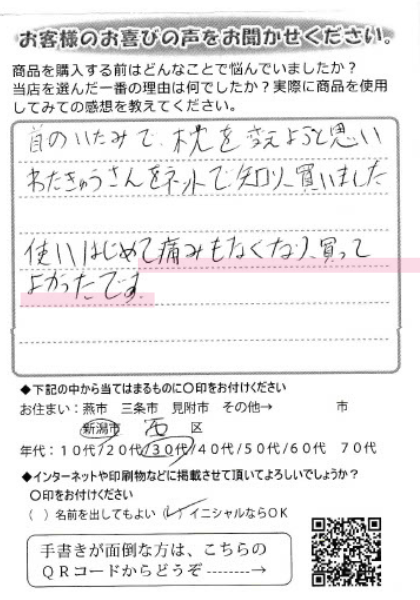 お客様のお喜びの声をお聞かせください。
商品を購入する前はどんなことで悩んでいましたか？
当店を選んだ一番の理由は何でしたか？実際に商品を使用
してみての感想を教えてください。
首のいたみで、枕を変えようと思い
わたきゅうさんをネットで知り、買いました
使いはじめて痛みもなくなり、買って
よかったです。
◆下記の中から当てはまるものに〇印をお付けください
お住まい：燕市　三条市　見附市　その他→　　　　市
新潟市　西　区
年代：１０代/２０代/３０代/４０代/５０代/６０代　７０代
◆インターネットや印刷物などに掲載させて頂いてよろしいでしょうか？
〇印をお付けください
（　）名前を出してもよい（✓）イニシャルならOK
手書きが面倒な方は、こちらの
ＱＲコードからどうぞ--------→